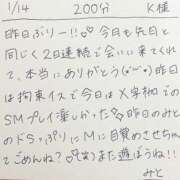 1/14 200分 K様
昨日ぶりー!!♡今日も先日と
同じく2日連続で会いに来てくれ
て、本当にありがとう(˘◡˘)♡昨日
は拘束イスで今日はX字架での
SMプレイ楽しかった♡昨日のみと
のドSっぷりにMに目覚めさせちゃっ
てごめんね?♡また遊ぼうね!!
みと